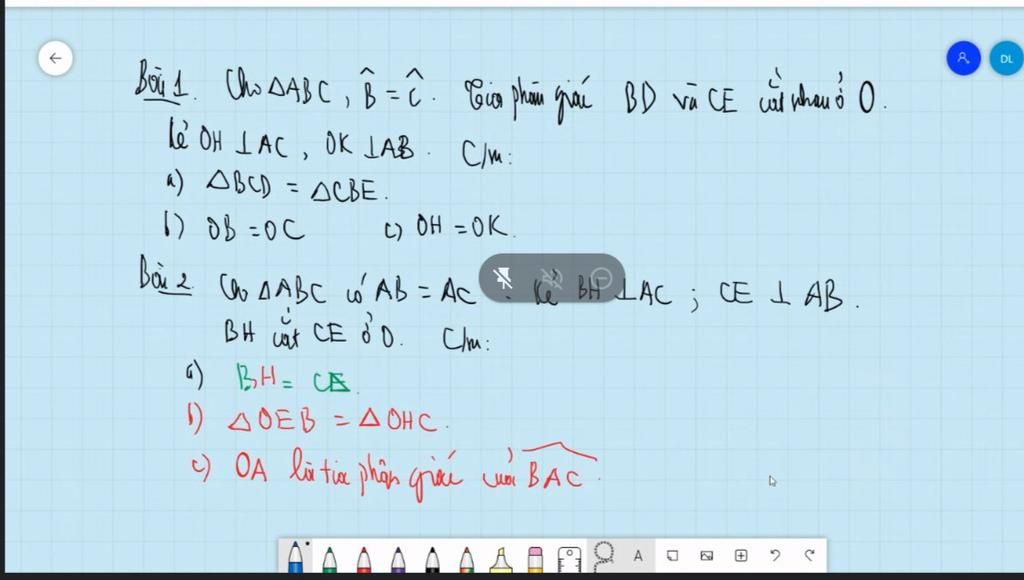 DL
Bài 1. Cho ΔABC, B̂ = Ĉ. Tia phân giác BD và CE cắt nhau ở O.
kẻ OH ⊥ AC, OK ⊥ AB. C/m:
a) ΔBCD = ΔCBE.
b) OB = OC c) OH = OK.
Bài 2 Cho ΔABC có AB = AC. kẻ BH ⊥ AC ; CE ⊥ AB.
BH cắt CE ở O. C/m:
a) BH = CE
b) ΔOEB = ΔOHC.
c) OA là tia phân giác của BAC.
A